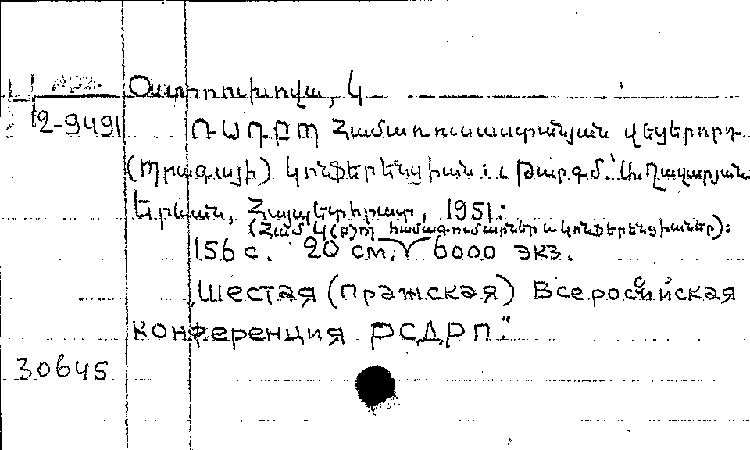 Օստրոուխովա, Կ
12-9491 ՌՍԴԲՊ Համառուսաստանյան վեցերորդ
(Պրագայի) կոնֆերենցիան։ Թարգմ.՝ Ղազարյան
Երևան, Հայպետհրատ, 1951։
(Համ Կ(բ)Պ համագումարներն ու կոնֆերենցիաները)։
156 с. 20 см. 6000 экз.
„Шестая (Пражская) Всероссийская
конференция РСДРП"
30645